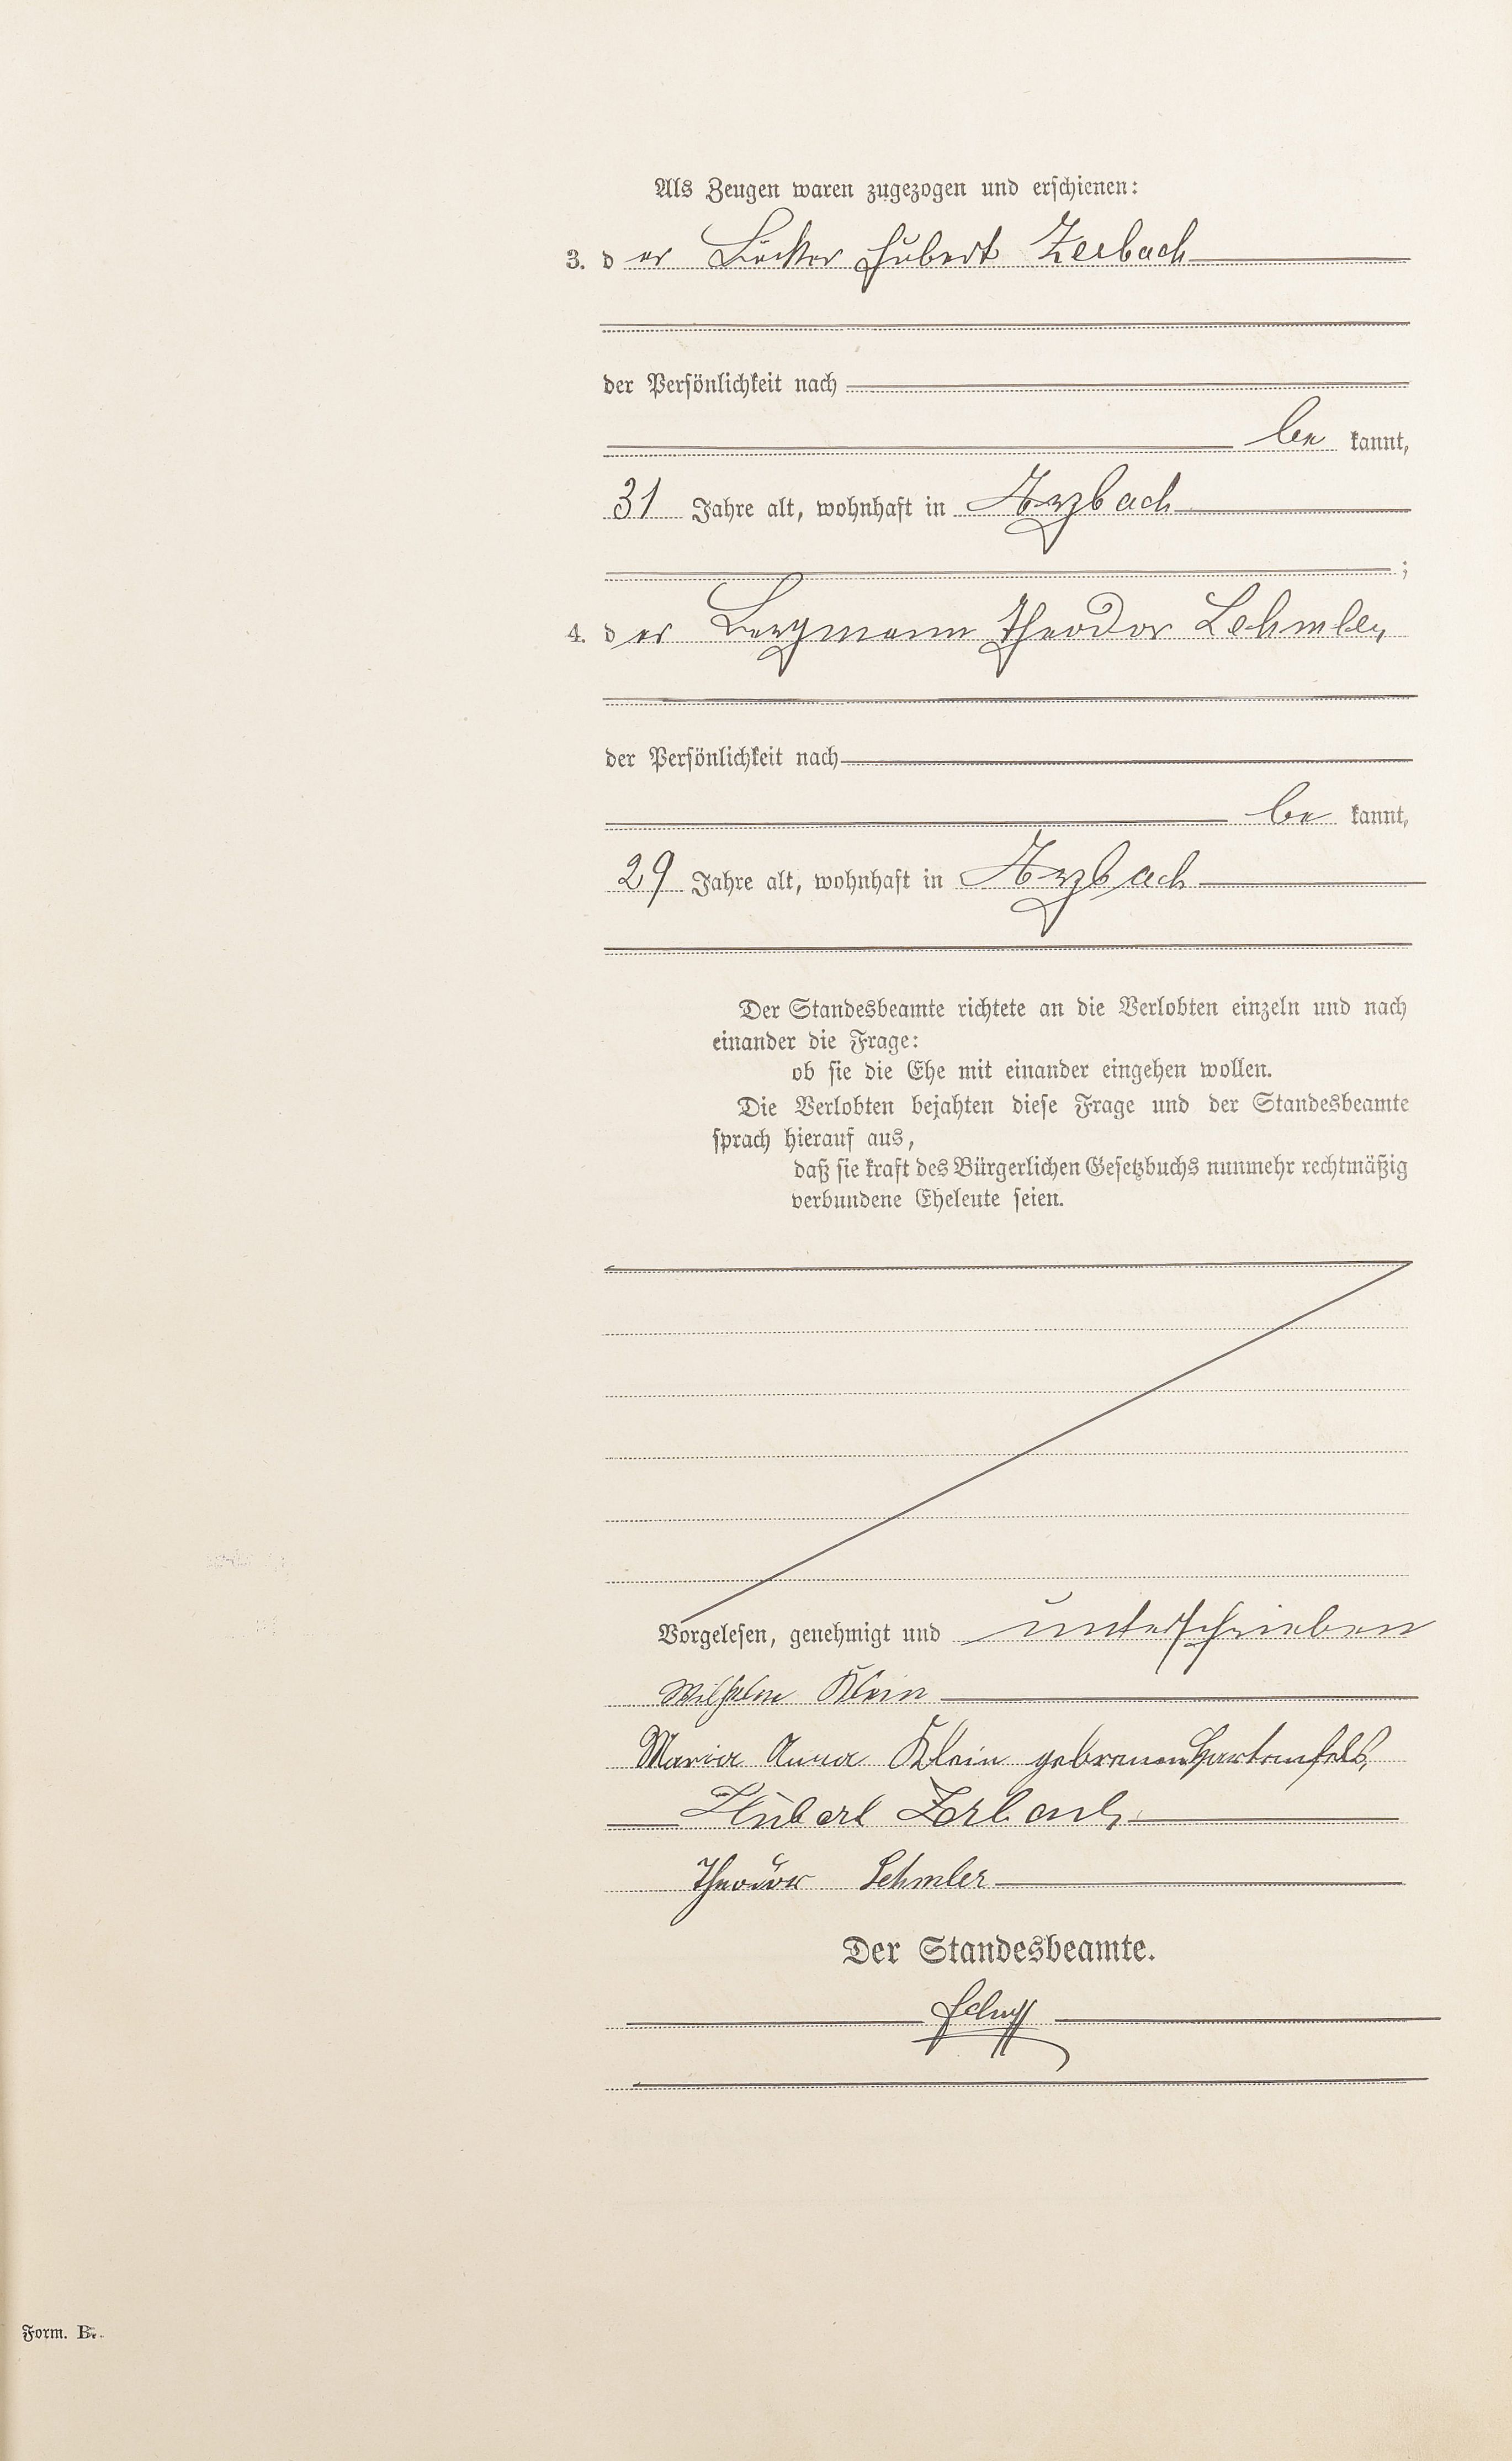 Als Zeugen waren zugezogen und erschienen:
3. d er Bäcker Hubert Zerbach
der Persönlichkeit nach
be kannt,
31 Jahre alt, wohnhaft in Arzbach
;
4. d er Bergmann Theodor Lehmler,
der Persönlichkeit nach
be kannt,
29 Jahre alt, wohnhaft in Arzbach
Der Standesbeamte richtete an die Verlobten einzeln und nach
einander die Frage:
ob sie die Ehe mit einander eingehen wollen.
Die Verlobten bejahten diese Frage und der Standesbeamte
sprach hierauf aus,
daß sie kraft des Bürgerlichen Gesetzbuchs nunmehr rechtmäßig
verbundene Eheleute seien.
Vorgelesen, genehmigt und unterschrieben
Wilhelm Klein
Maria Anna Klein geborenen Hartenfels,
Hubert Zerbach,
Theodor Lehmler
Der Standesbeamte.
Form. B.